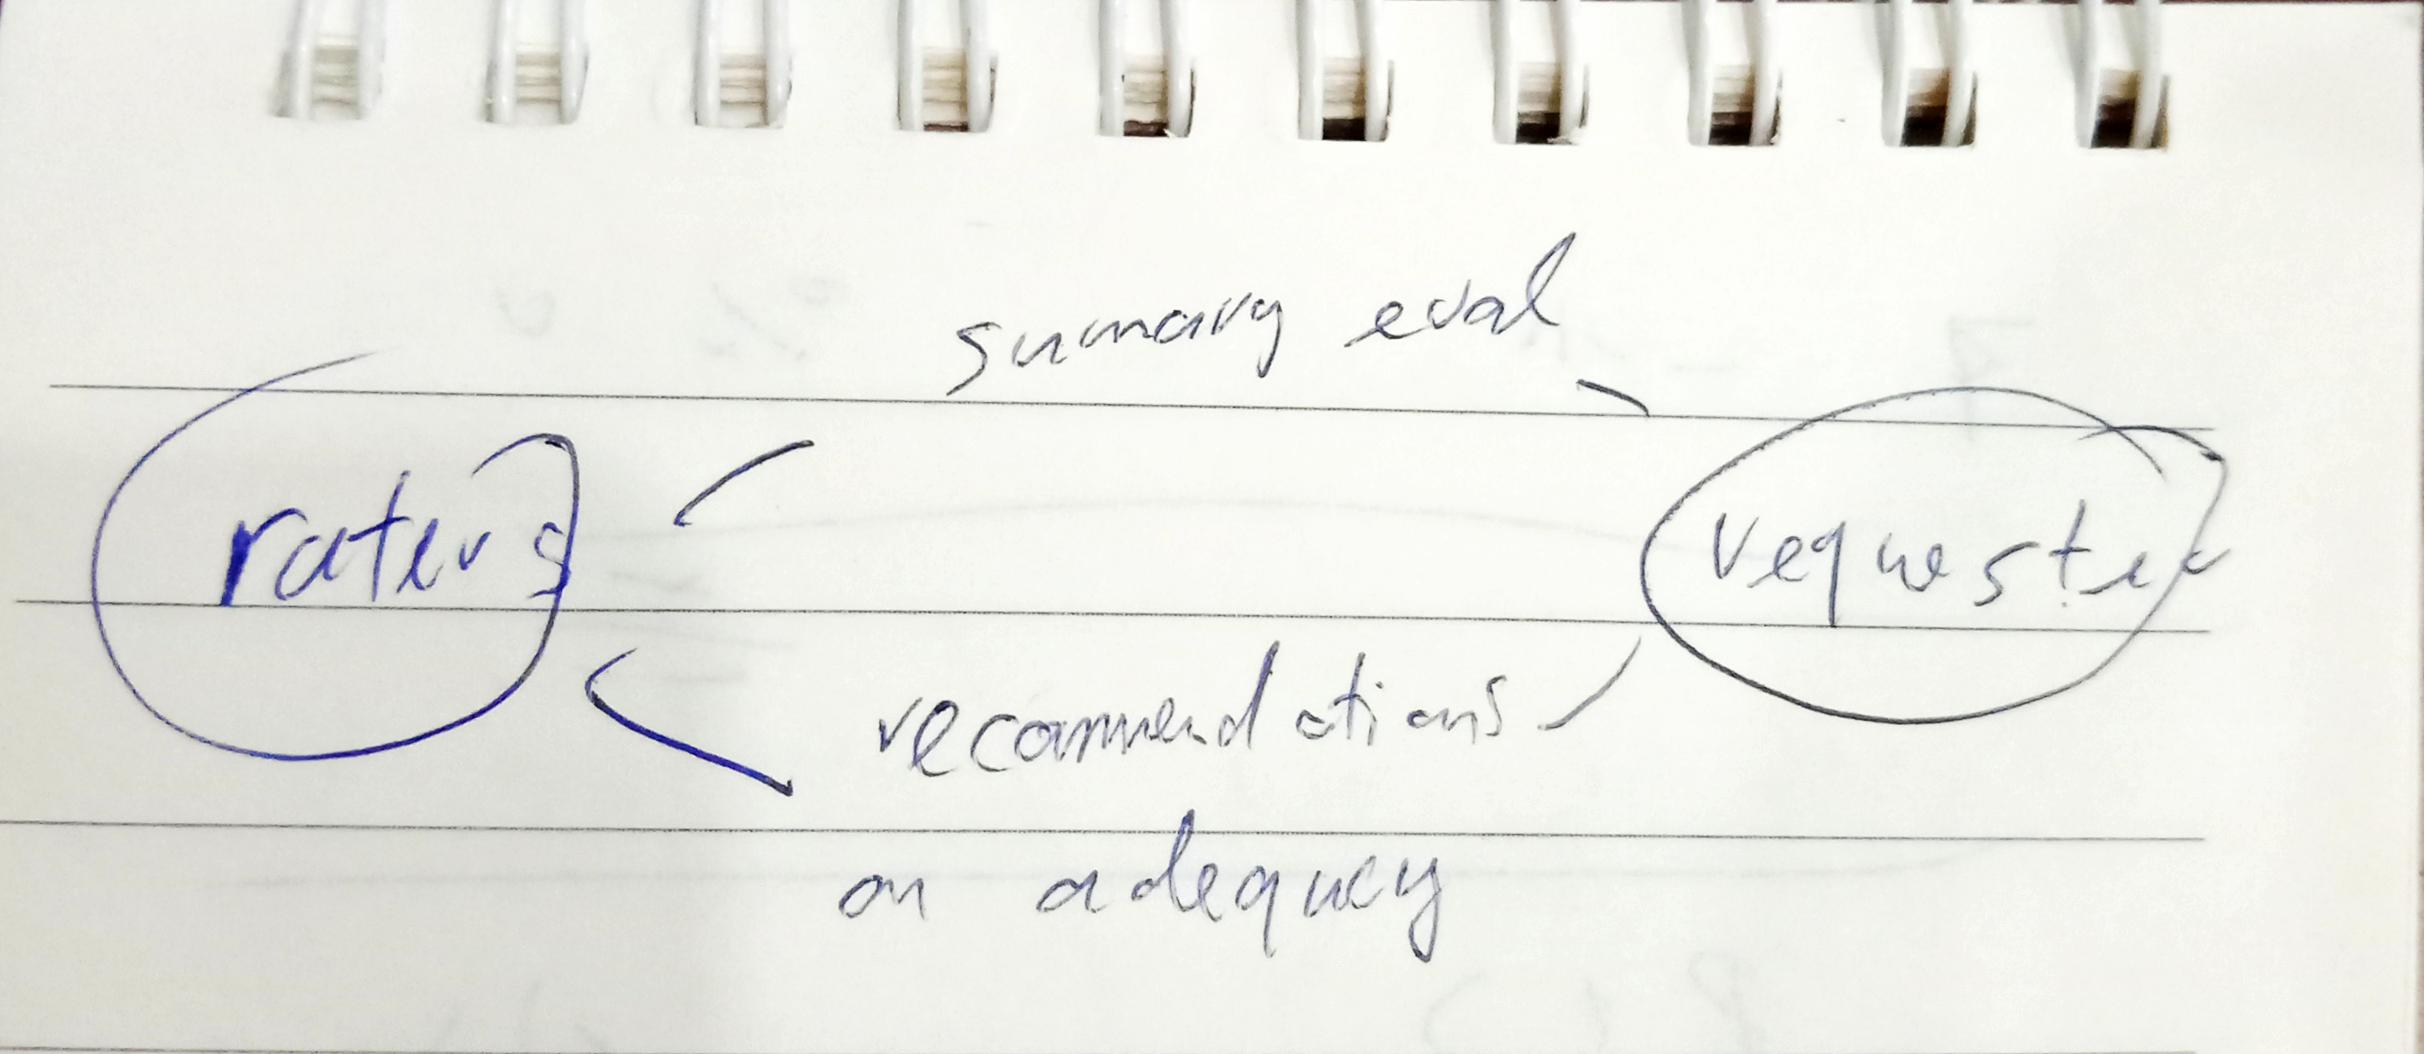 sumary eval
raters
requester
recommendations
on adequcy